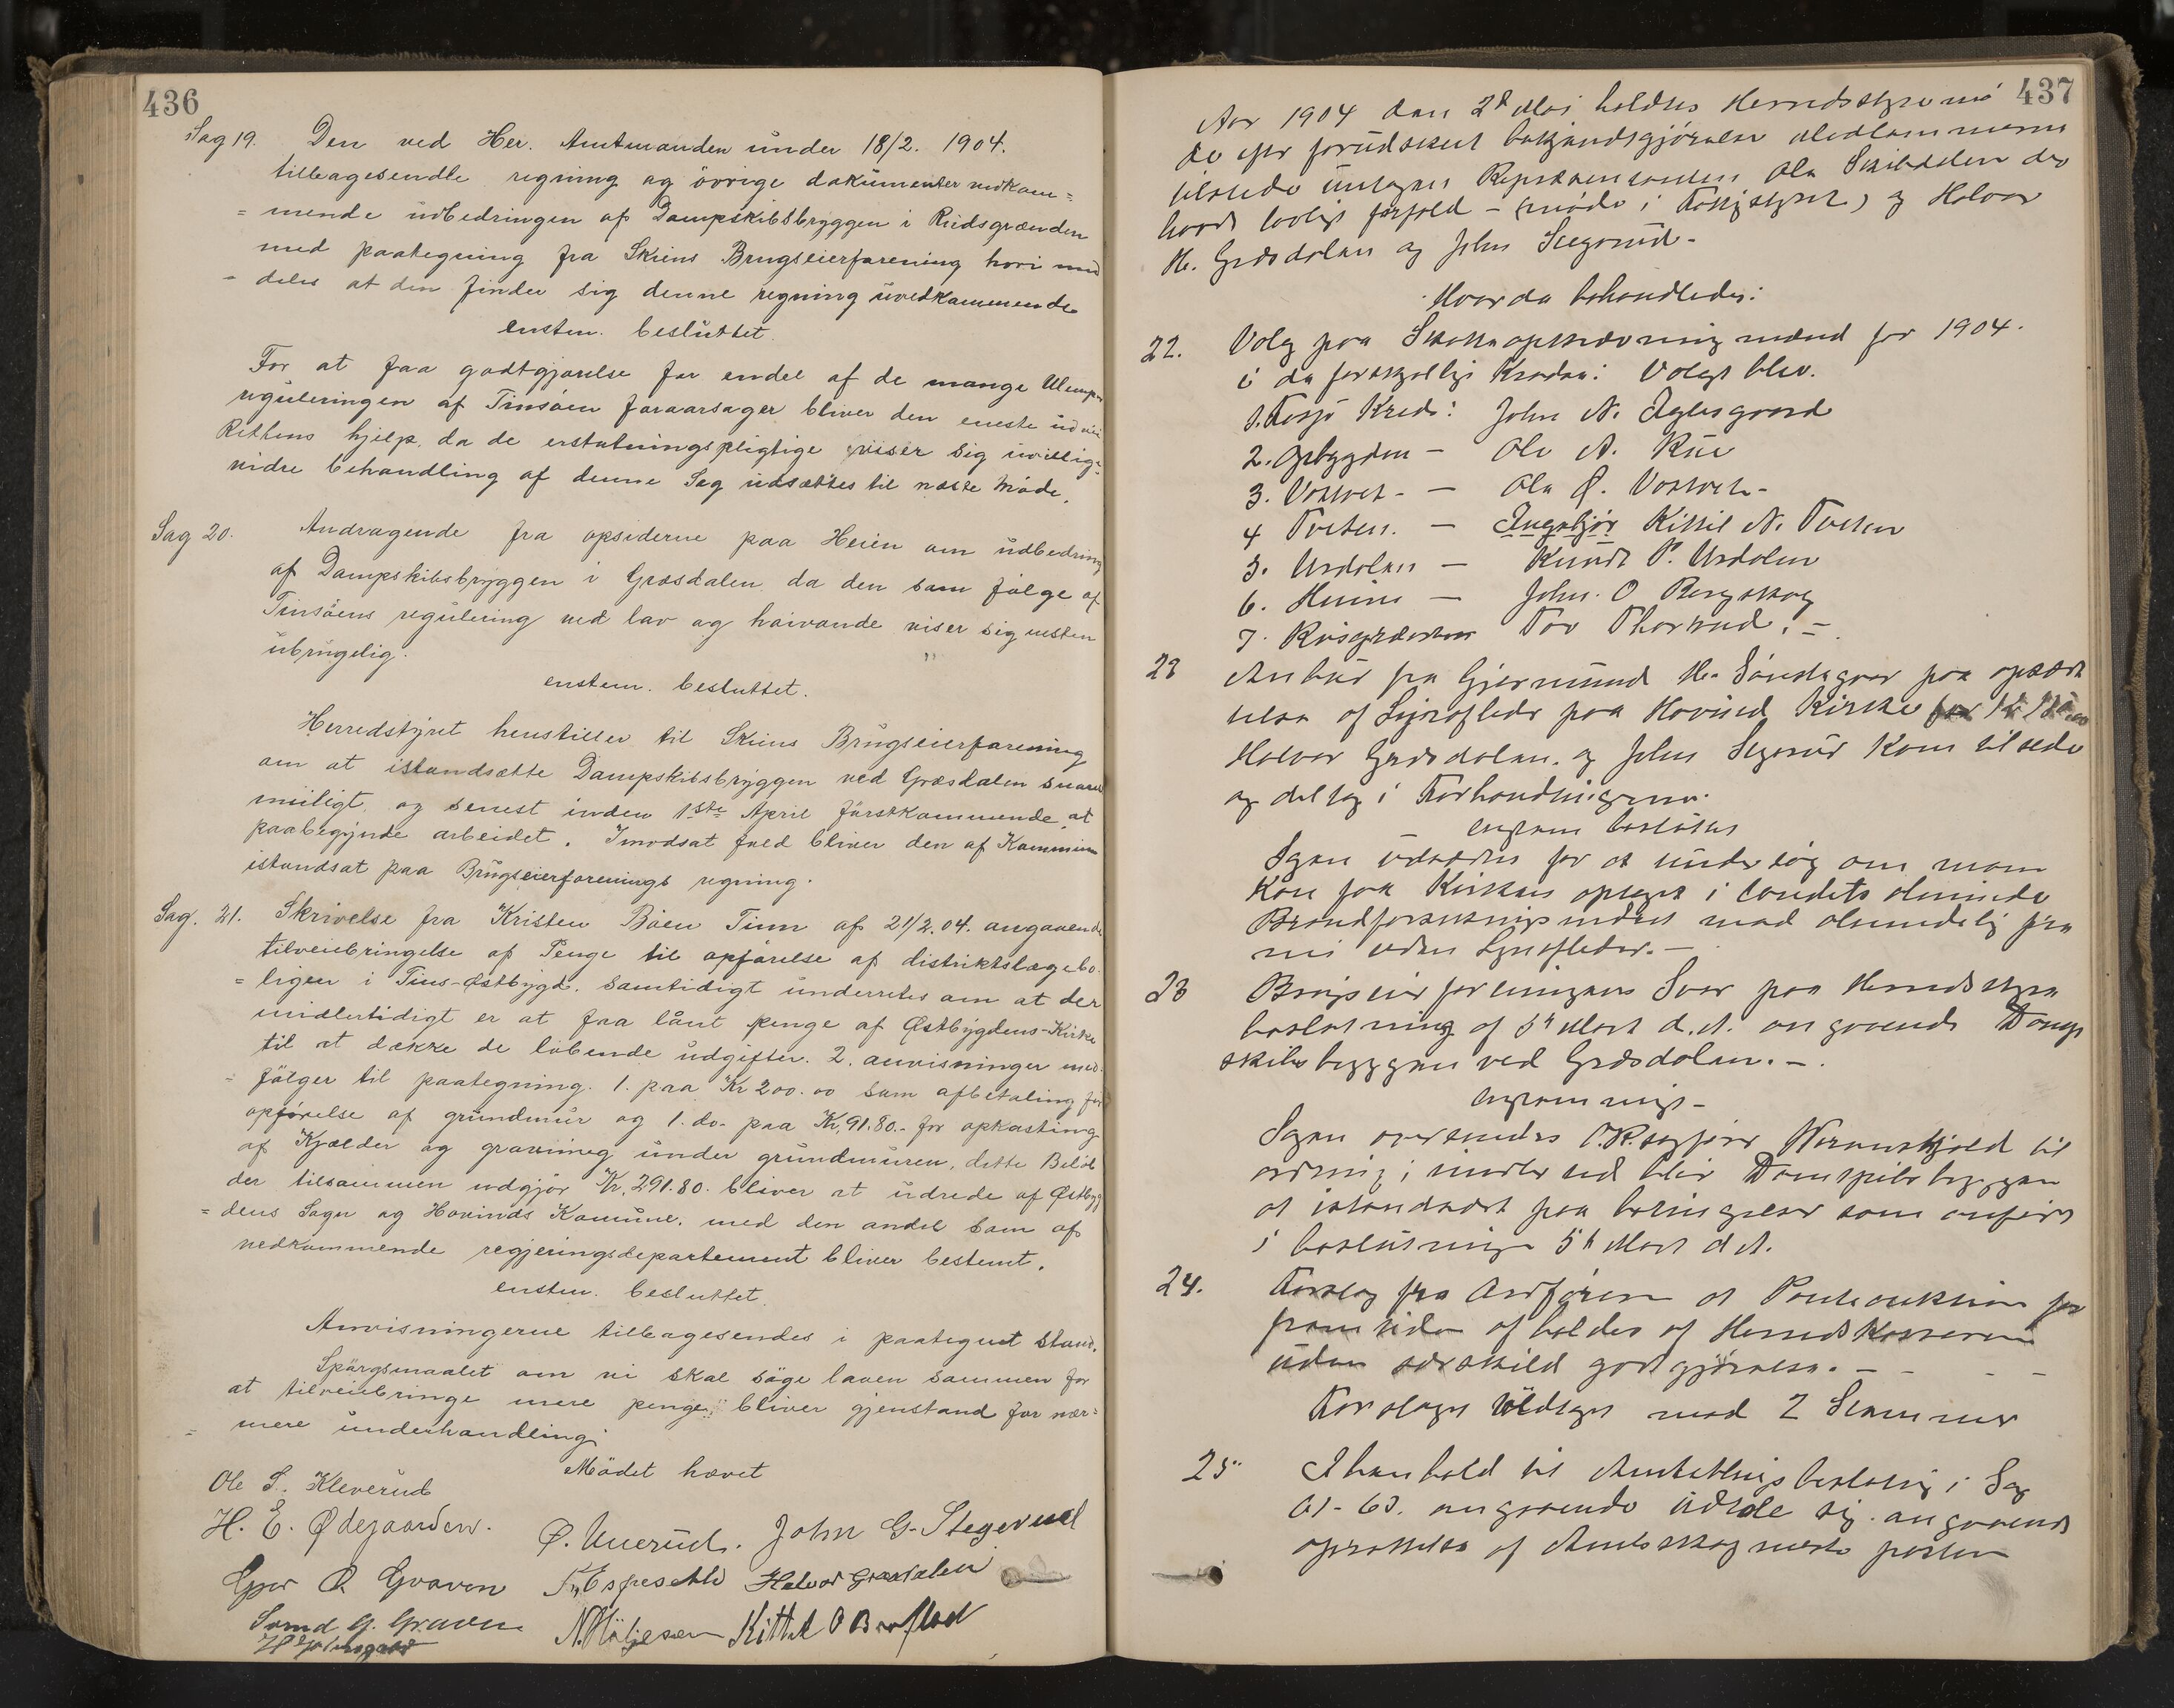 436
Sag 19. Den ved Her. Amtmanden under 18/2. 1904.
tilbagesendte regning og övrige dokumenter vedkom=
=mende udbedringen af Dampskibsbryggen i Rudsgrænden
med paategning fra Skiens Brugseierforening hvori med
-deles at den finder sig denne regning uvedkommende
enstem. besluttet.
For at faa godtgjørelse for endel af de mange Ulemper
reguleringen af Tinsöen foraarsager bliver den eneste udvei
Rettens hjelp, da de erstatningspligtige viser sig uvillig=
vidre behandling af denne Sag udsættes til næste Möde.
Sag 20. Andragende fra opsiderne paa Heien om udbedring
af Dampskibsbryggen i Græsdalen da den som fölge af
Tinsöens regulering ved lav og hoivande viser sig nesten
ubrugelig.
enstem. besluttet.
Herredstyret henstiller til Skiens Brugseierforening
om at istandsætte Dampskibsbryggen ved Græsdalen snarest
muligt, og senest inden 1ste April förstkommende at
paabegynde arbeidet. Imodsat fald bliver den af Kommunen
istandsat paa Brugseierforenings regning.
Sag. 21. Skrivelse fra Kristen Böen Tinn af 21/2.04. angaaende
tilveiebringelse af Penge til opförelse af distriktslægebo-
=ligen i Tins-Østbygd. Samtidigt underrettes om at der
midlertidigt er at faa lånt penge af Østbygdens-Kirke
til at dække de löbende udgifter. 2. anvisninger med-
=fölger til paategning. 1. paa Kr 200.00 som afbetaling for
opförelse af grundmur og 1. do. paa Kr. 91.80.- for opkasting
af Kjælder og graving under grundmuren, dette Belöb
der tilsammen udgjör Kr. 291.80. bliver at udrede af Østbyg
=dens Sogn og Hovinds Komune. med den andel som af
vedkommende regjeringsdepartement bliver bestemt.
enstem. besluttet.
Anvisningerne tilbagesendes i paategnet Stand.
Spörgsmaalet om vi skal söge laven sammen for
at tilveiebringe mere penge, bliver gjenstand for nær=
=mere underhandling.
Mödet hævet
Ole S. Kleverud
H. E. Ødegaarden. Ø. Uverud. John G. Stegerud
Gjer Ø Graven Espeseth Halvor Græsdalen
Svend G. Graven N. Höljesen Kittil O
437
Aar 1904 den 2d Mai holdtes Herredsstyremö
de efter forudskeet bekjendtgjörelse Medlemmerne
tilstede Repræsentanten Ola Skibsdalen der
havde lovligt forfald - (möde i ) og Halvor
H. Græsdalen og John Stegerud -
Hvor da behandledes:
22. Valg paa Skatteopkrævningsmænd for 1904.
i de forskjellige Kredse: Valgt blev.
1. Kreds: John N.
2. - Ole A. Rue
3. - Ola Ø.
4 Tveten. - Ingebjör Kittil N. Tveten
5. Urdalen - Knudt P. Urdalen
6. - John. O Bergskog
7. Tov Thorsrud. -
23 Anbud fra Gjermund H. paa opsæt
telse af Lynafleder paa Hovind Kirke for
Halvor Græsdalen. og John Stegerud kom tilstede
og deltog i Forhandlingerne.
enstem besluttet
Sagen udsættes for at undersög om man
kan faa Kirken optaget i Landets almindelige
Brandforsikringsindret mod almindelig præ
mi uden Lynafleder. -
23 Brugseierforeningens Svar paa Herredsstyre
beslutning af 5h Mart d. A. angaaende Damp
skibsbryggen ved Græsdalen. -
enstemmigt -
Sagen oversendes O.R.sagförer til
ordning; imidlertid blir Dampskibsbryggen
at istandsæt paa betingelser som anfört
i beslutning 5h Mart d A.
24. Forslag fra Ordföreren at Panteauktion for
fremtiden afholdes af Herredskassereren
uden særskild godtgjörelse. -
Forslaget vedtaget mod 2 Stemmer
25 I henhold til Amtstings beslutning i Sag
61-63. angaaende udtale sig. angaaende
oprettelse af Amtsskogmester posten